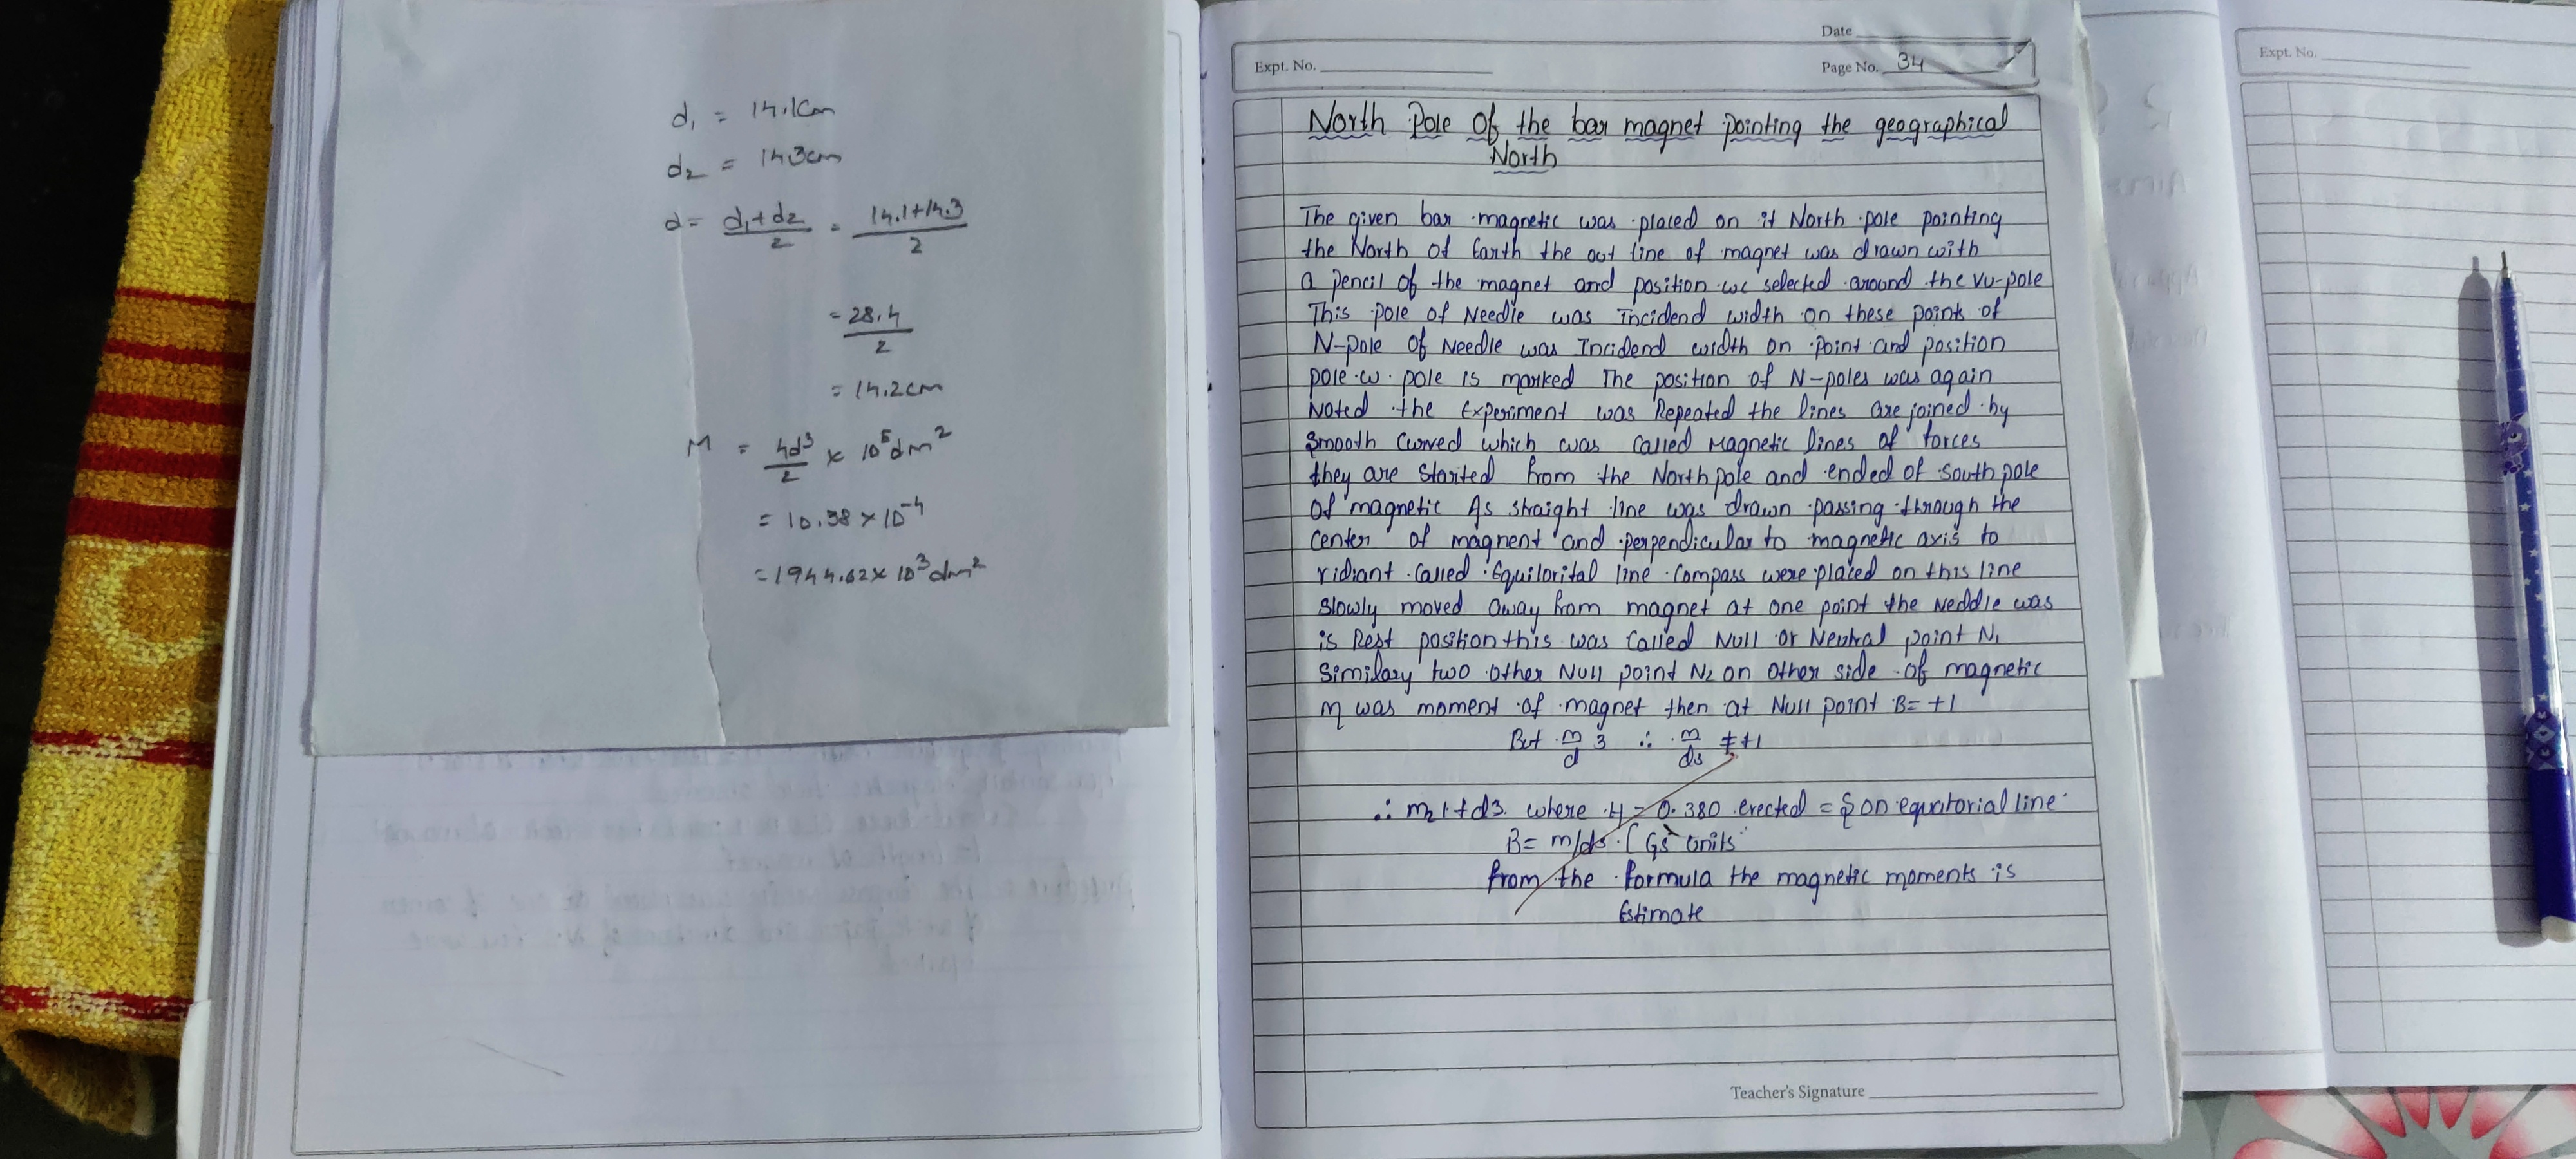 d₁ = 14.1cm
d₂ = 143cm
d = d₁+d₂/2 = 14.1+14.3/2
= 28.4/2
= 14.2cm
M = 4d³/2 × 10⁵dm²
= 10.38×10⁻⁴
= 1944.62×10³dm²
Date
Expt. No.
Page No. 34
North Pole Of the bar magnet pointing the geographical
North
The given bar magnetic was placed on it North pole pointing
the North of Earth the out line of magnet was drawn with
a pencil of the magnet and position we selected around the vu-pole
This pole of Needle was Incidend width on these points of
N-pole of Needle was Incidend width on point and position
pole w. pole is marked The position of N-poles was again
Noted the Experiment was Repeated the lines are joined by
Smooth Curved which was called Magnetic lines of forces
they are Started from the North pole and ended of south pole
Of magnetic As straight line was drawn passing through the
Center of magnent and perpendicular to magnetic axis to
ridiant Called Equilorital line Compass were placed on this line
Slowly moved away from magnet at one point the Neddle was
is Rest position this was Called Null or Neutral point N₁
Similary two other Null point N₂ on other side of magnetic
M was moment of magnet then at Null point B= +1
But m/d 3 ∴ m/ds ≠+1
∴ m₂1+d3 where H = 0.380 erected = on equatorial line
B= m/ds [Gs units
from the formula the magnetic moments is
Estimate
Teacher's Signature
Expt. No.